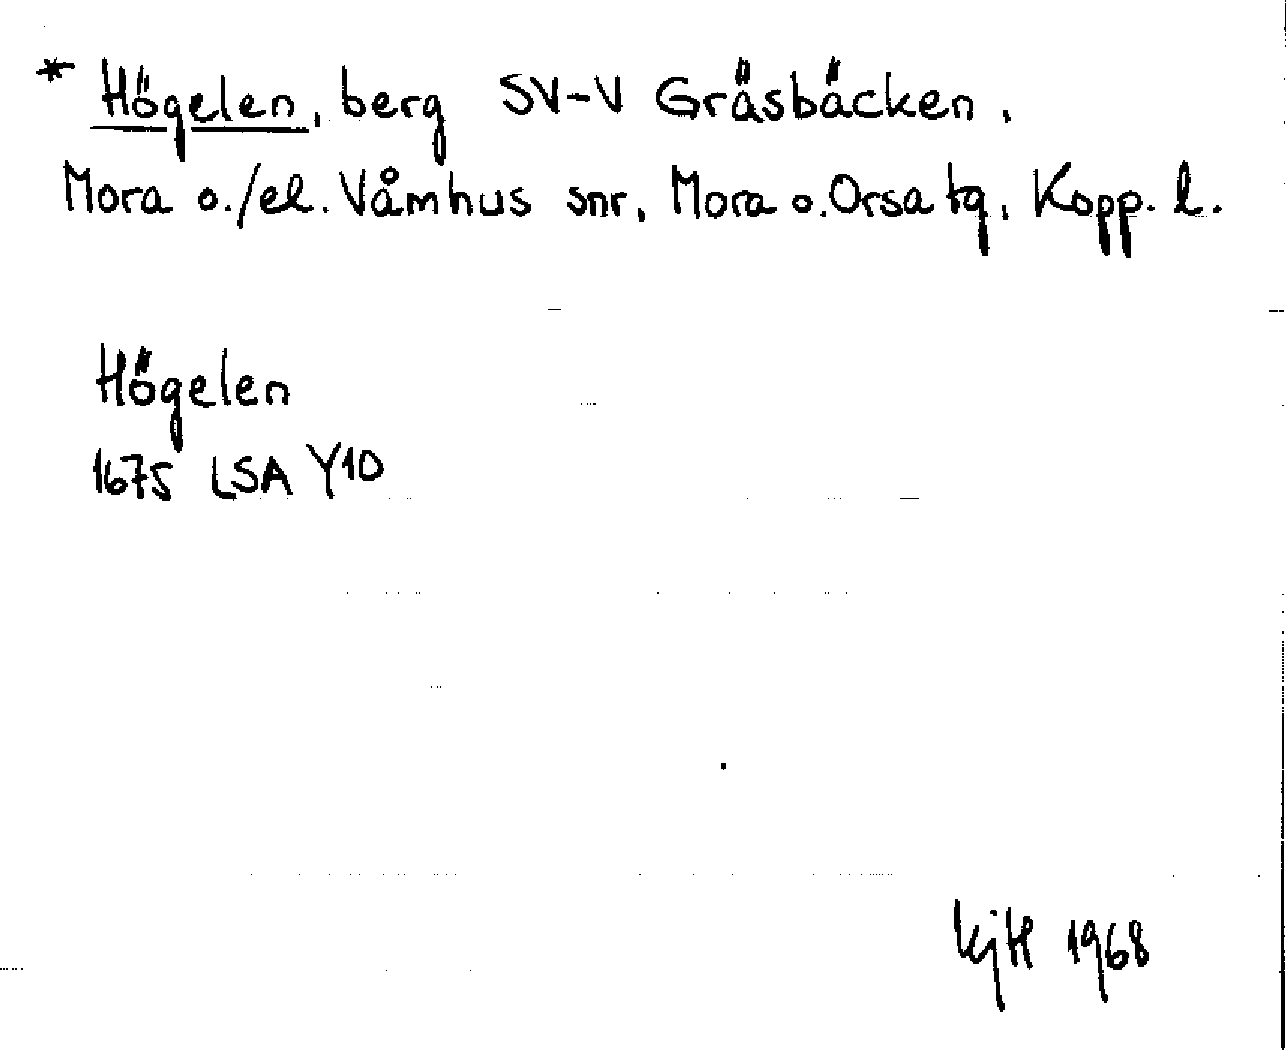 * Högelen, berg SV-V Gräsbäcken,
Mora o./el. Våmhus snr, Mora o. Orsa tg, Kopp. l.
Högelen
1675 LSA Y10
KjH 1968